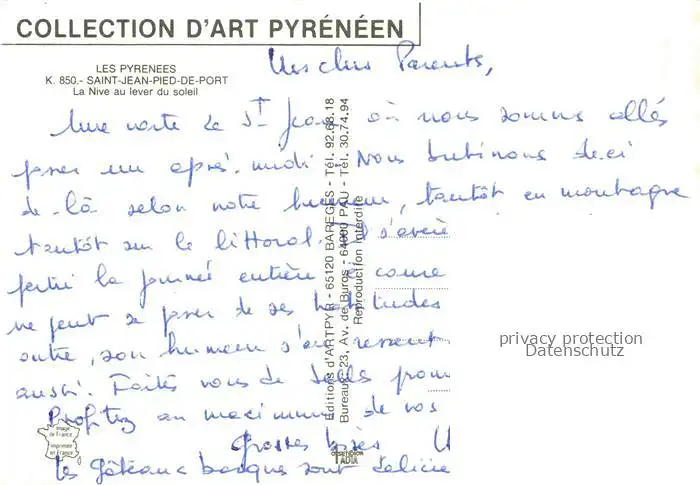 COLLECTION D'ART PYRÉNÉEN
LES PYRENEES
K. 850.- SAINT-JEAN-PIED-DE-PORT
La Nive au lever du soleil
Mes chers Parents,
Une carte de St Jean où nous sommes allés
passer un après-midi. Nous butinons de-ci
de-là selon notre humeur, tantôt en montagne
tantôt sur le littoral. s'avère
partir la journée entière
ne peut se passer de ses habitudes
outre, son humeur s'en ressent
aussi. Faites vous de belles prom
Profitez au maximum de vos
Grosses bises
Les gâteaux basques sont délicie
Editions d'ARTPYR - 65120 BAREGES - Tél. 92.68.18
Bureaux: 23, Av. de Buros - 64000 PAU - Tél. 30.74.94
Reproduction Interdite
image de France
imprimée en France
privacy protection
Datenschutz